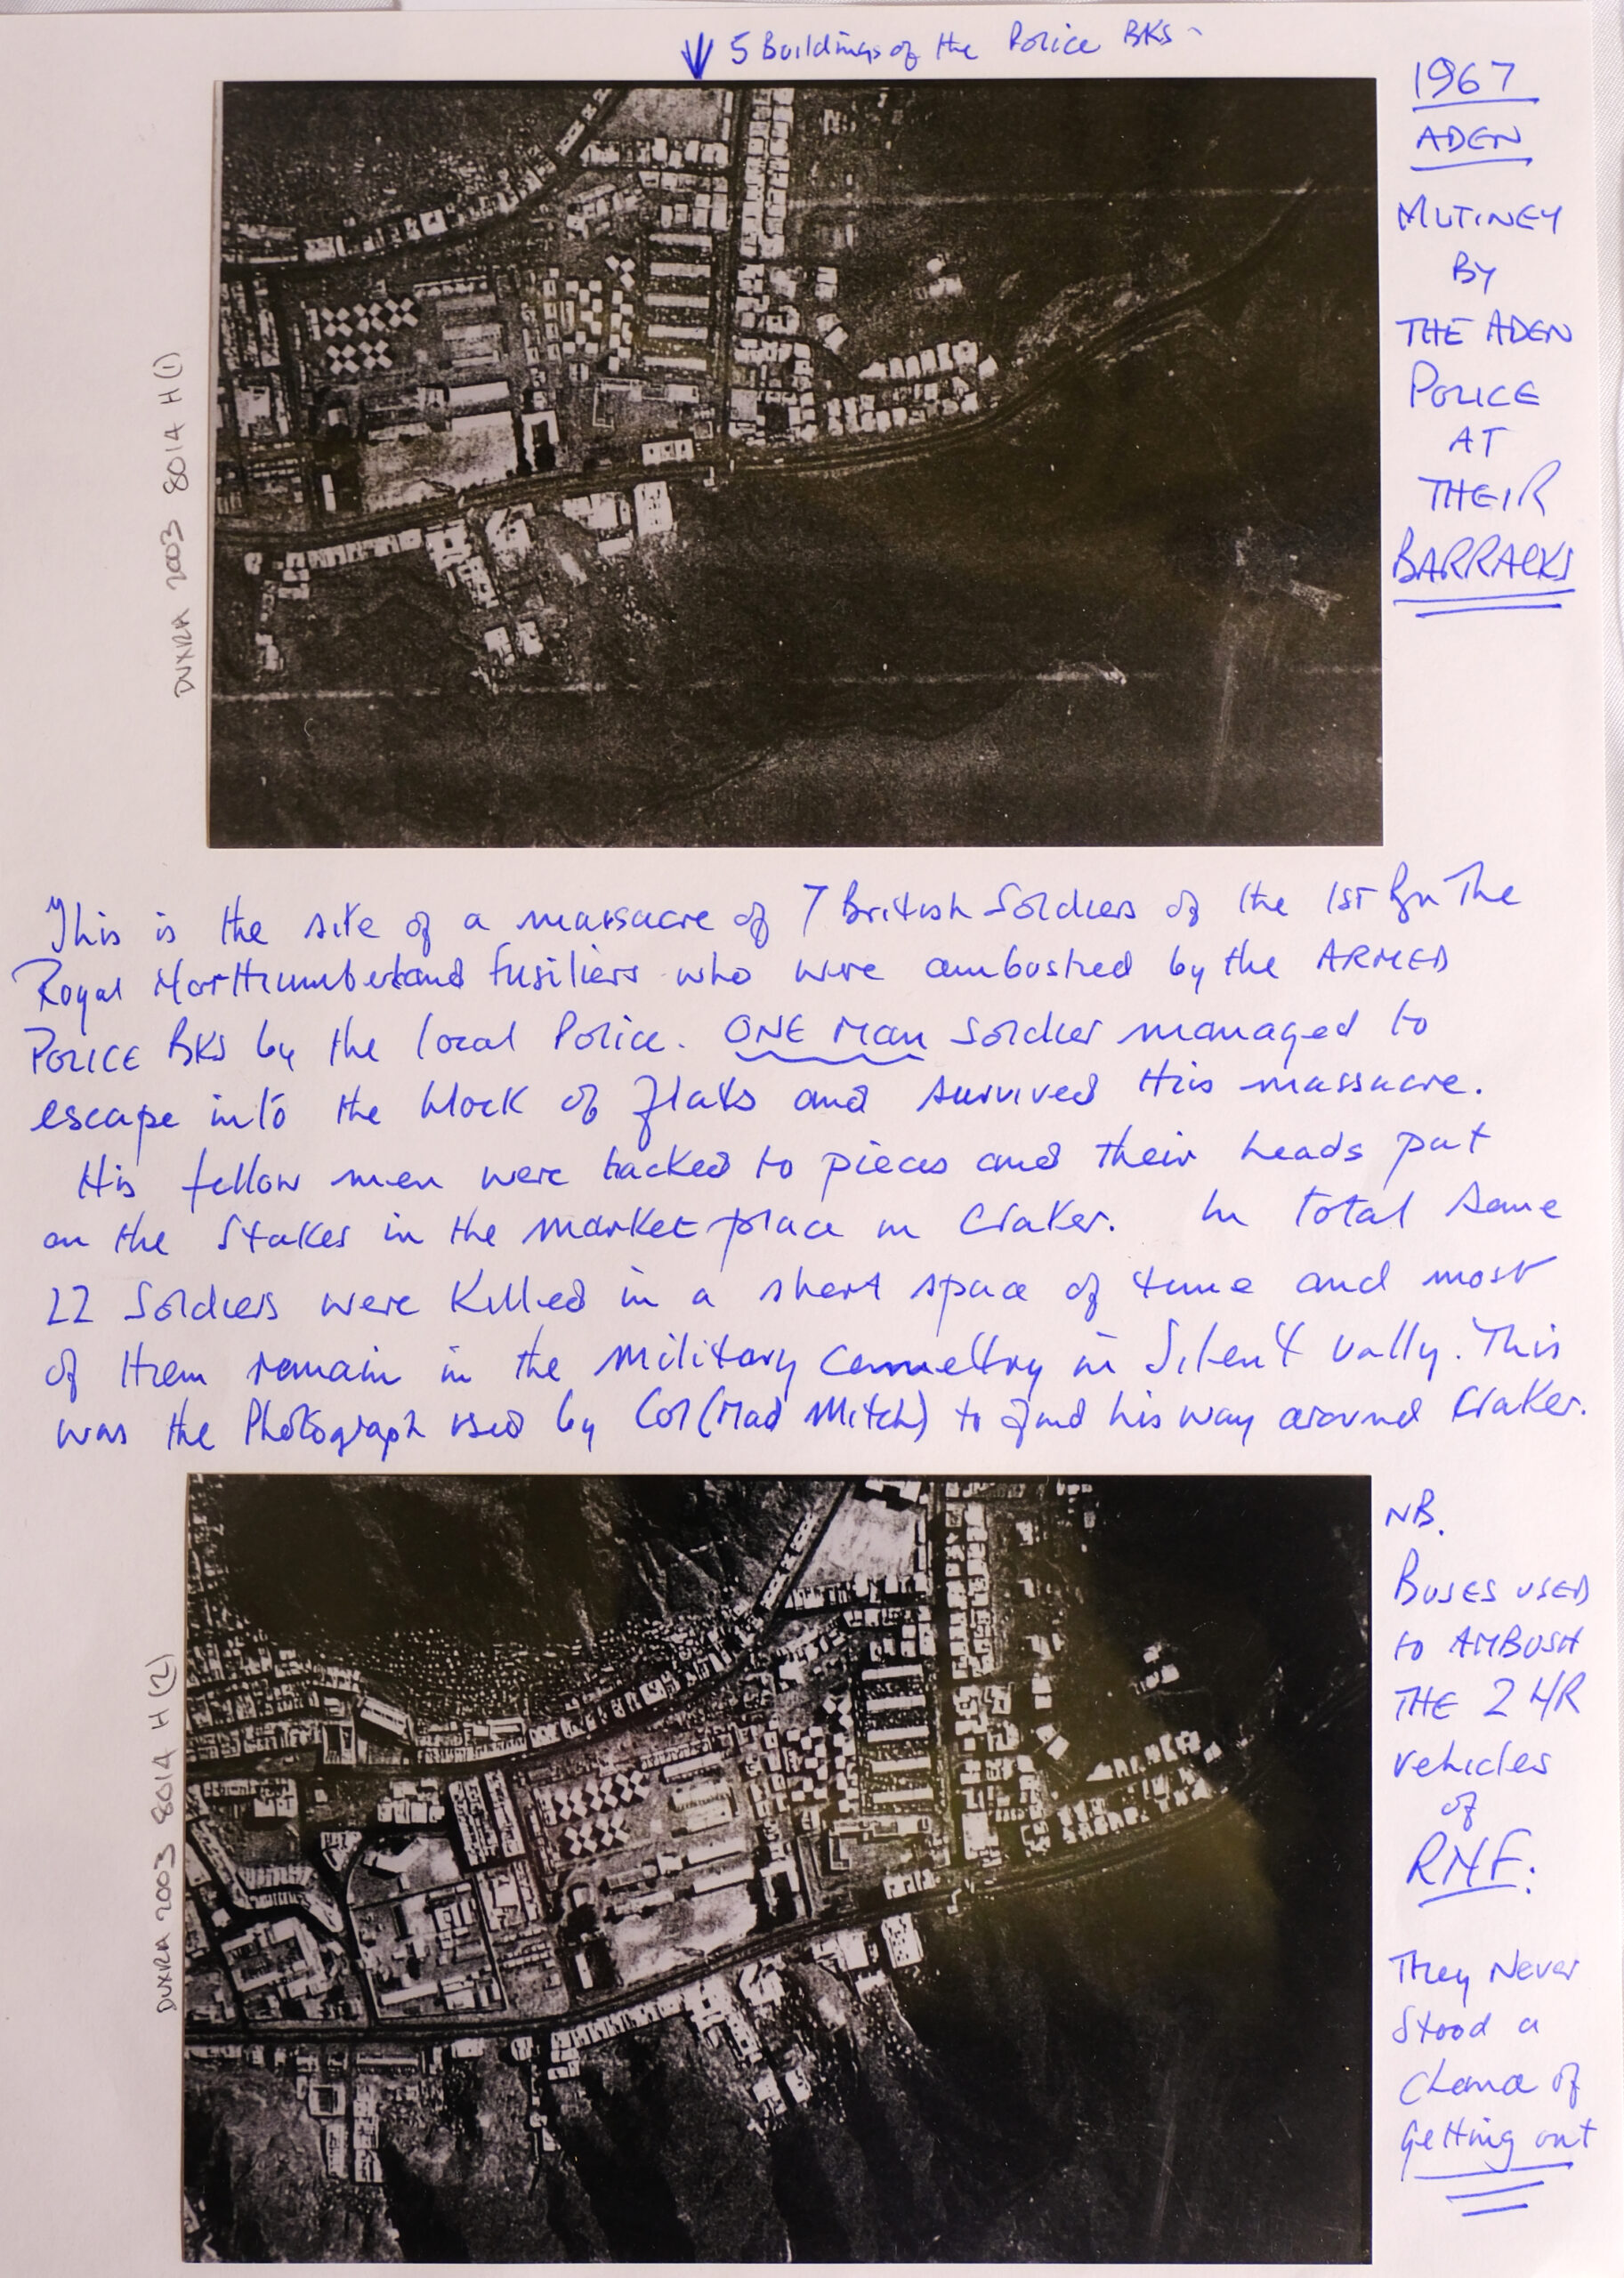 ↓ 5 Buildings of the Police BKS
1967
ADEN
MUTINEY
BY
THE ADEN
POLICE
AT
THEIR
BARRACKS
DUXRA 2003 8014 H(1)
This is the site of a massacre of 7 British Soldiers of the 1st Bn The
Royal Northumberland Fusiliers who were ambushed by the ARMED
POLICE BKS by the local Police. ONE Man Soldier managed to
escape into the block of flats and survived this massacre.
His fellow men were hacked to pieces and their heads put
on the stakes in the market place in Craker. In total some
22 Soldiers were killed in a short space of time and most
of them remain in the military cemeltry in Silent vally. This
was the Photograph used by Col (Mad Mitch) to find his way around Craker.
DUXRA 2003 8014 H(2)
NB.
BUSES USED
to AMBUSH
THE 2 4/R
vehicles
of
RNF.
They Never
Stood a
Chance of
Getting out